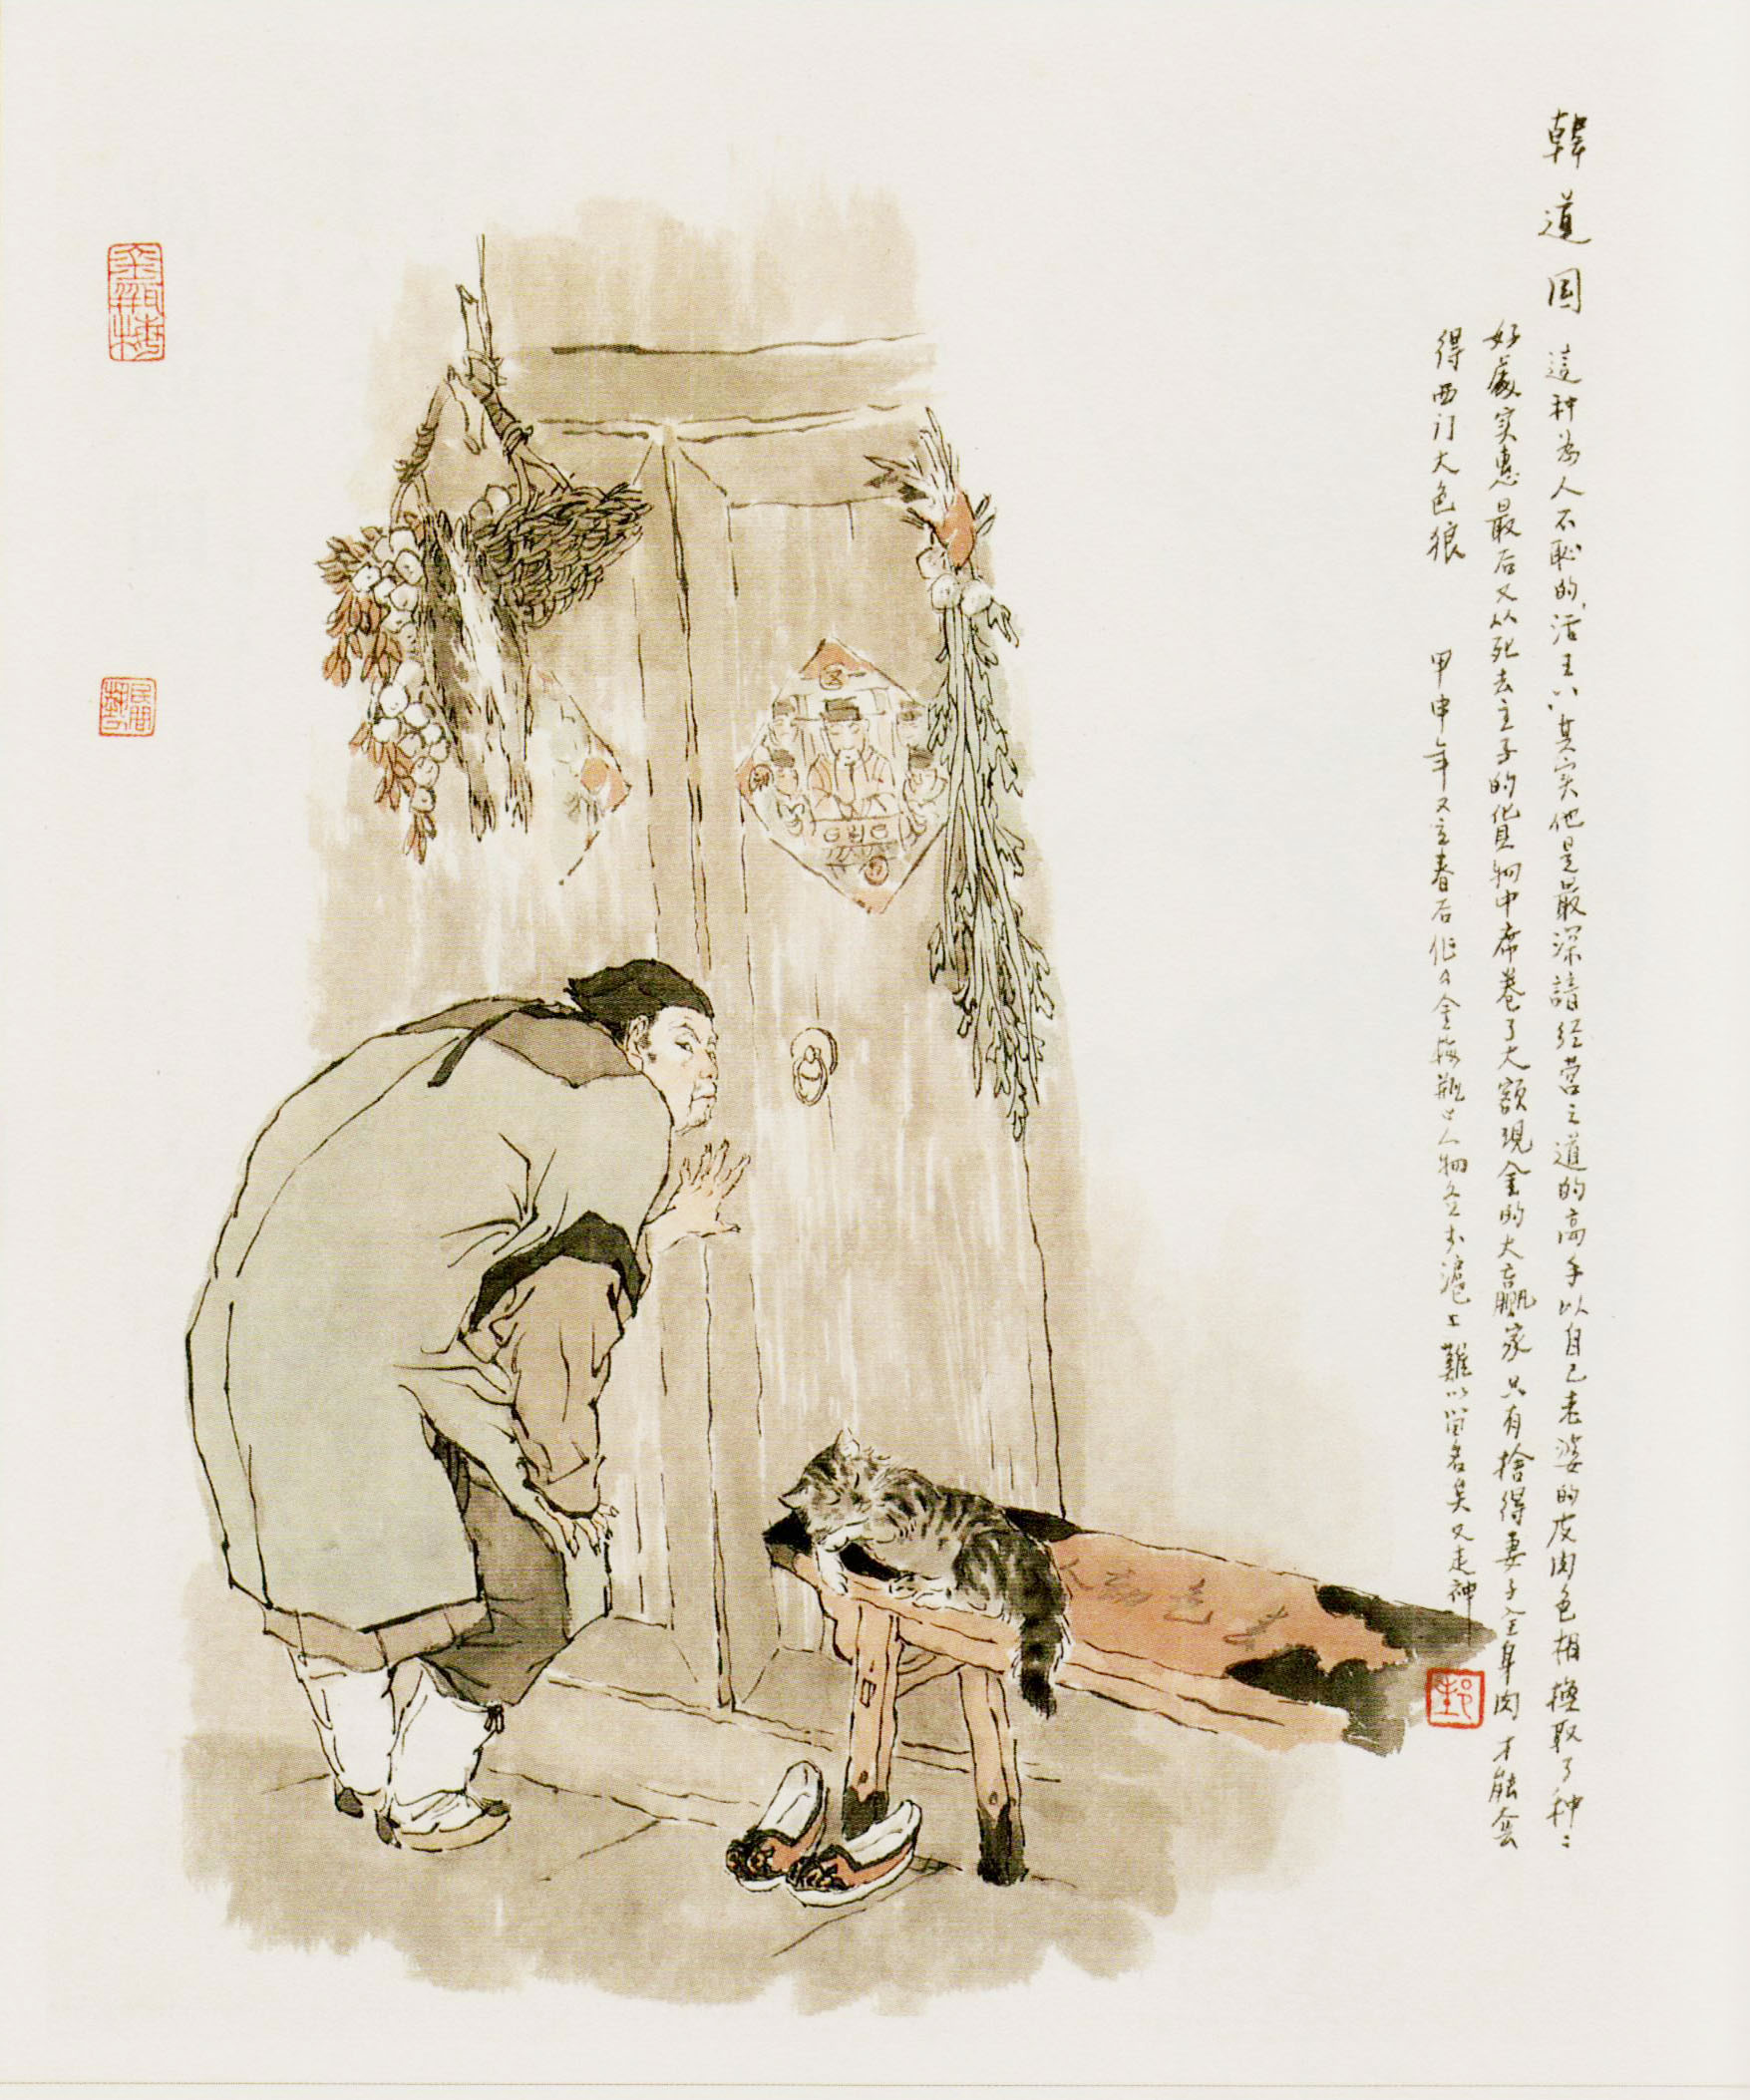 韓道国 這种為人不恥的活王八其实他是最深諳经营之道的高手以自己老婆的皮肉色相換取了种〻
好處实惠最后又从死去主子的貨物中席卷了大额現金的大贏家只有捨得妻子全身肉才能套
得西门大色狼 甲申年又立春后作金梅瓶中人物于滬上難以留名矣又走神
金瓶梅
封